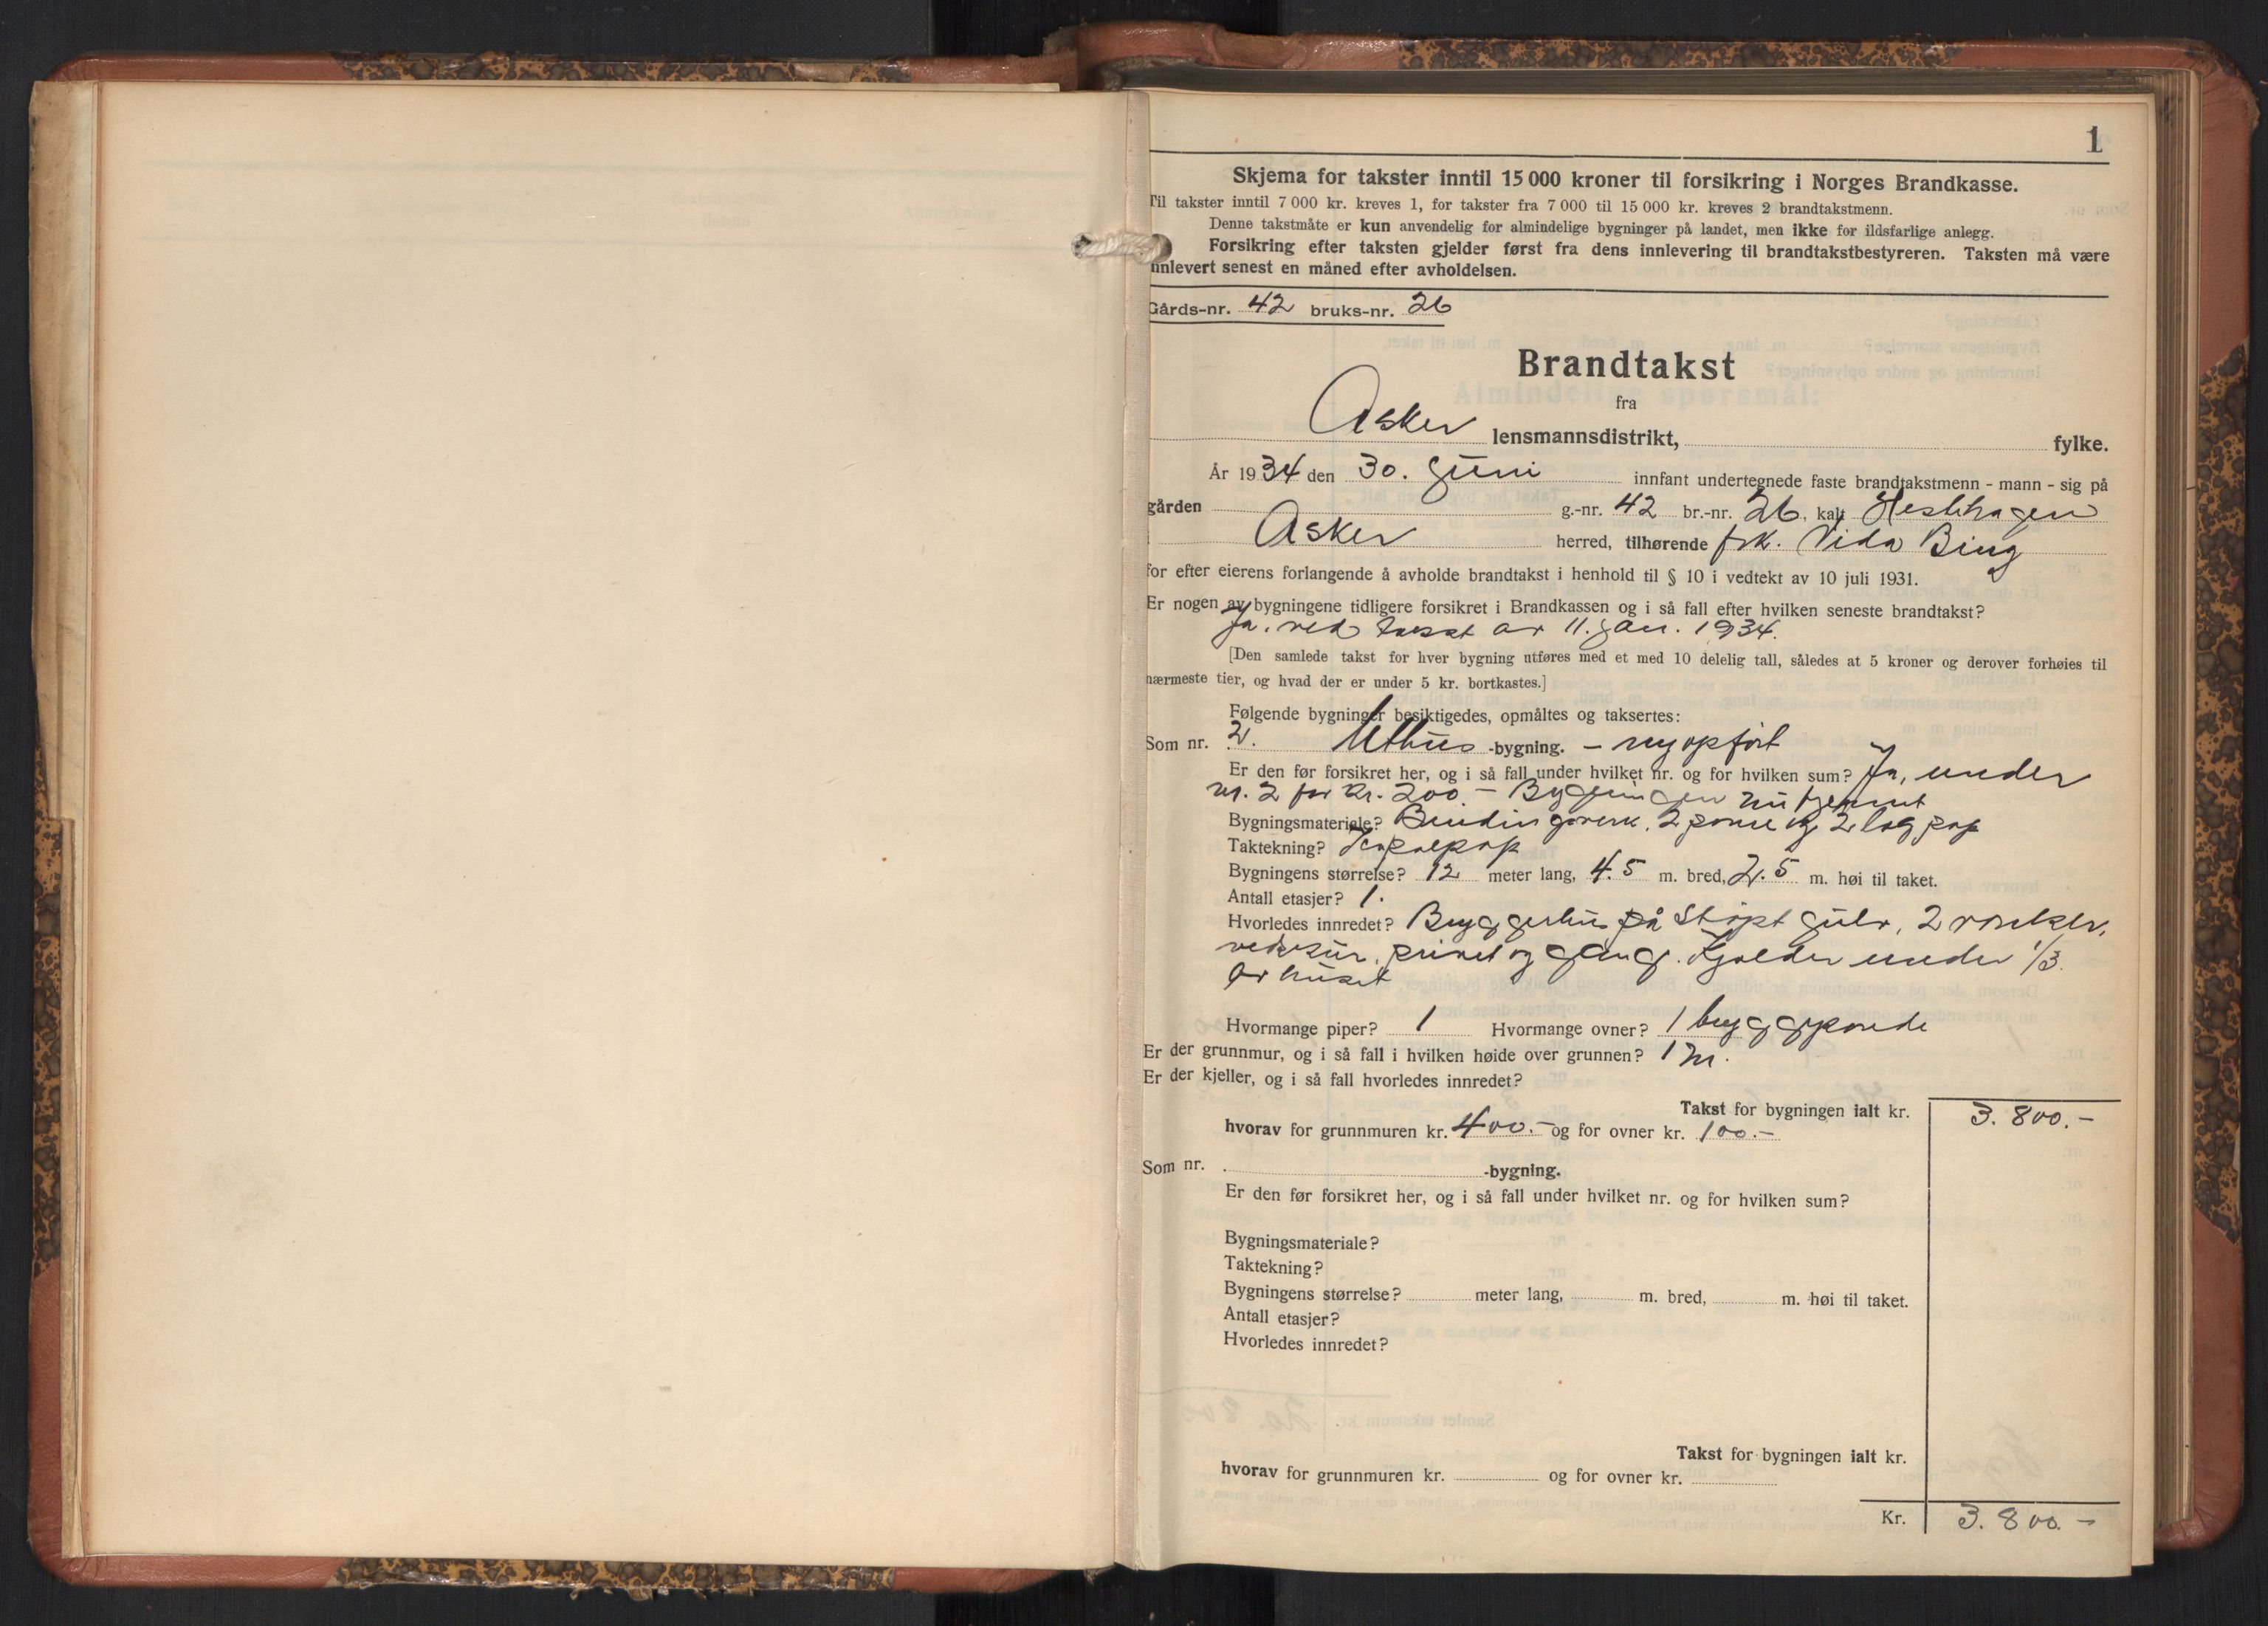 1
Skjema for takster inntil 15 000 kroner til forsikring i Norges Brandkasse.
Til takster inntil 7 000 kr. kreves 1, for takster fra 7 000 til 15 000 kr. kreves 2 brandtakstmenn.
Denne takstmåte er kun anvendelig for almindelige bygninger på landet, men ikke for ildsfarlige anlegg.
Forsikring efter taksten gjelder først fra dens innlevering til brandtakstbestyreren. Taksten må være
innlevert senest en måned efter avholdelsen.
Gårds-nr. 42 bruks-nr. 26
Brandtakst
fra
Asker lensmannsdistrikt, fylke.
År 1934 den 30. Juni innfant undertegnede faste brandtakstmenn - mann - sig på
gården g.-nr. 42 br.-nr. 26, kalt Hestehagen
Asker herred, tilhørende frk. Vida Bing
for efter eierens forlangende å avholde brandtakst i henhold til § 10 i vedtekt av 10 juli 1931.
Er nogen av bygningene tidligere forsikret i Brandkassen og i så fall efter hvilken seneste brandtakst?
Ja, ved takst av 11. jan. 1934.
[Den samlede takst for hver bygning utføres med et med 10 delelig tall, således at 5 kroner og derover forhøies til
nærmeste tier, og hvad der er under 5 kr. bortkastes.]
Følgende bygninger besiktigedes, opmåltes og taksertes:
Som nr. 2. Uthus -bygning. - nyopført
Er den før forsikret her, og i så fall under hvilket nr. og for hvilken sum? Ja, under
nr. 2 for kr. 200.- Bygningen nu fjernet
Bygningsmateriale? Bindingsverk, 2 panel og 2 lag pap
Taktekning? Kapalpap
Bygningens størrelse? 12 meter lang, 4.5 m. bred, 2.5 m. høi til taket.
Antall etasjer? 1.
Hvorledes innredet? Bryggerhus på støpt gulv, 2
vedskur, privet og gang. Kjelder under 1/3.
av huset
Hvormange piper? 1 Hvormange ovner? 1 bryggpande
Er der grunnmur, og i så fall i hvilken høide over grunnen? 1 m.
Er der kjeller, og i så fall hvorledes innredet?
Takst for bygningen ialt kr. 3.800.-
hvorav for grunnmuren kr. 400.- og for ovner kr. 100.-
Som nr. -bygning.
Er den før forsikret her, og i så fall under hvilket nr. og for hvilken sum?
Bygningsmateriale?
Taktekning?
Bygningens størrelse? meter lang, m. bred, m. høi til taket.
Antall etasjer?
Hvorledes innredet?
Takst for bygningen ialt kr.
hvorav for grunnmuren kr. og for ovner kr.
Kr. 3.800.-